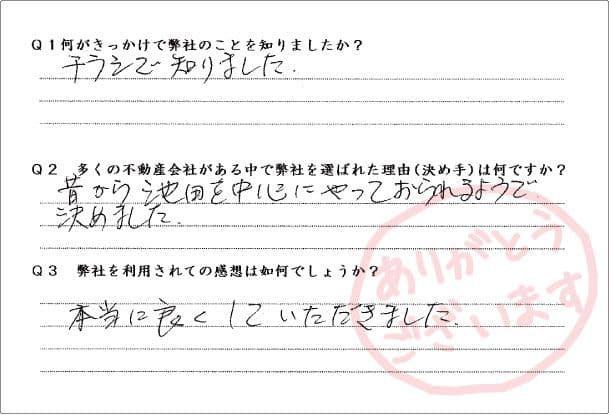 Q1何がきっかけで弊社のことを知りましたか?
チラシで知りました.
Q2 多くの不動産会社がある中で弊社を選ばれた理由(決め手)は何ですか?
昔から池田を中心にやっておられるようで
決めました.
Q3 弊社を利用されての感想は如何でしょうか?
本当に良くしていただきました.
ありがとう
ございます